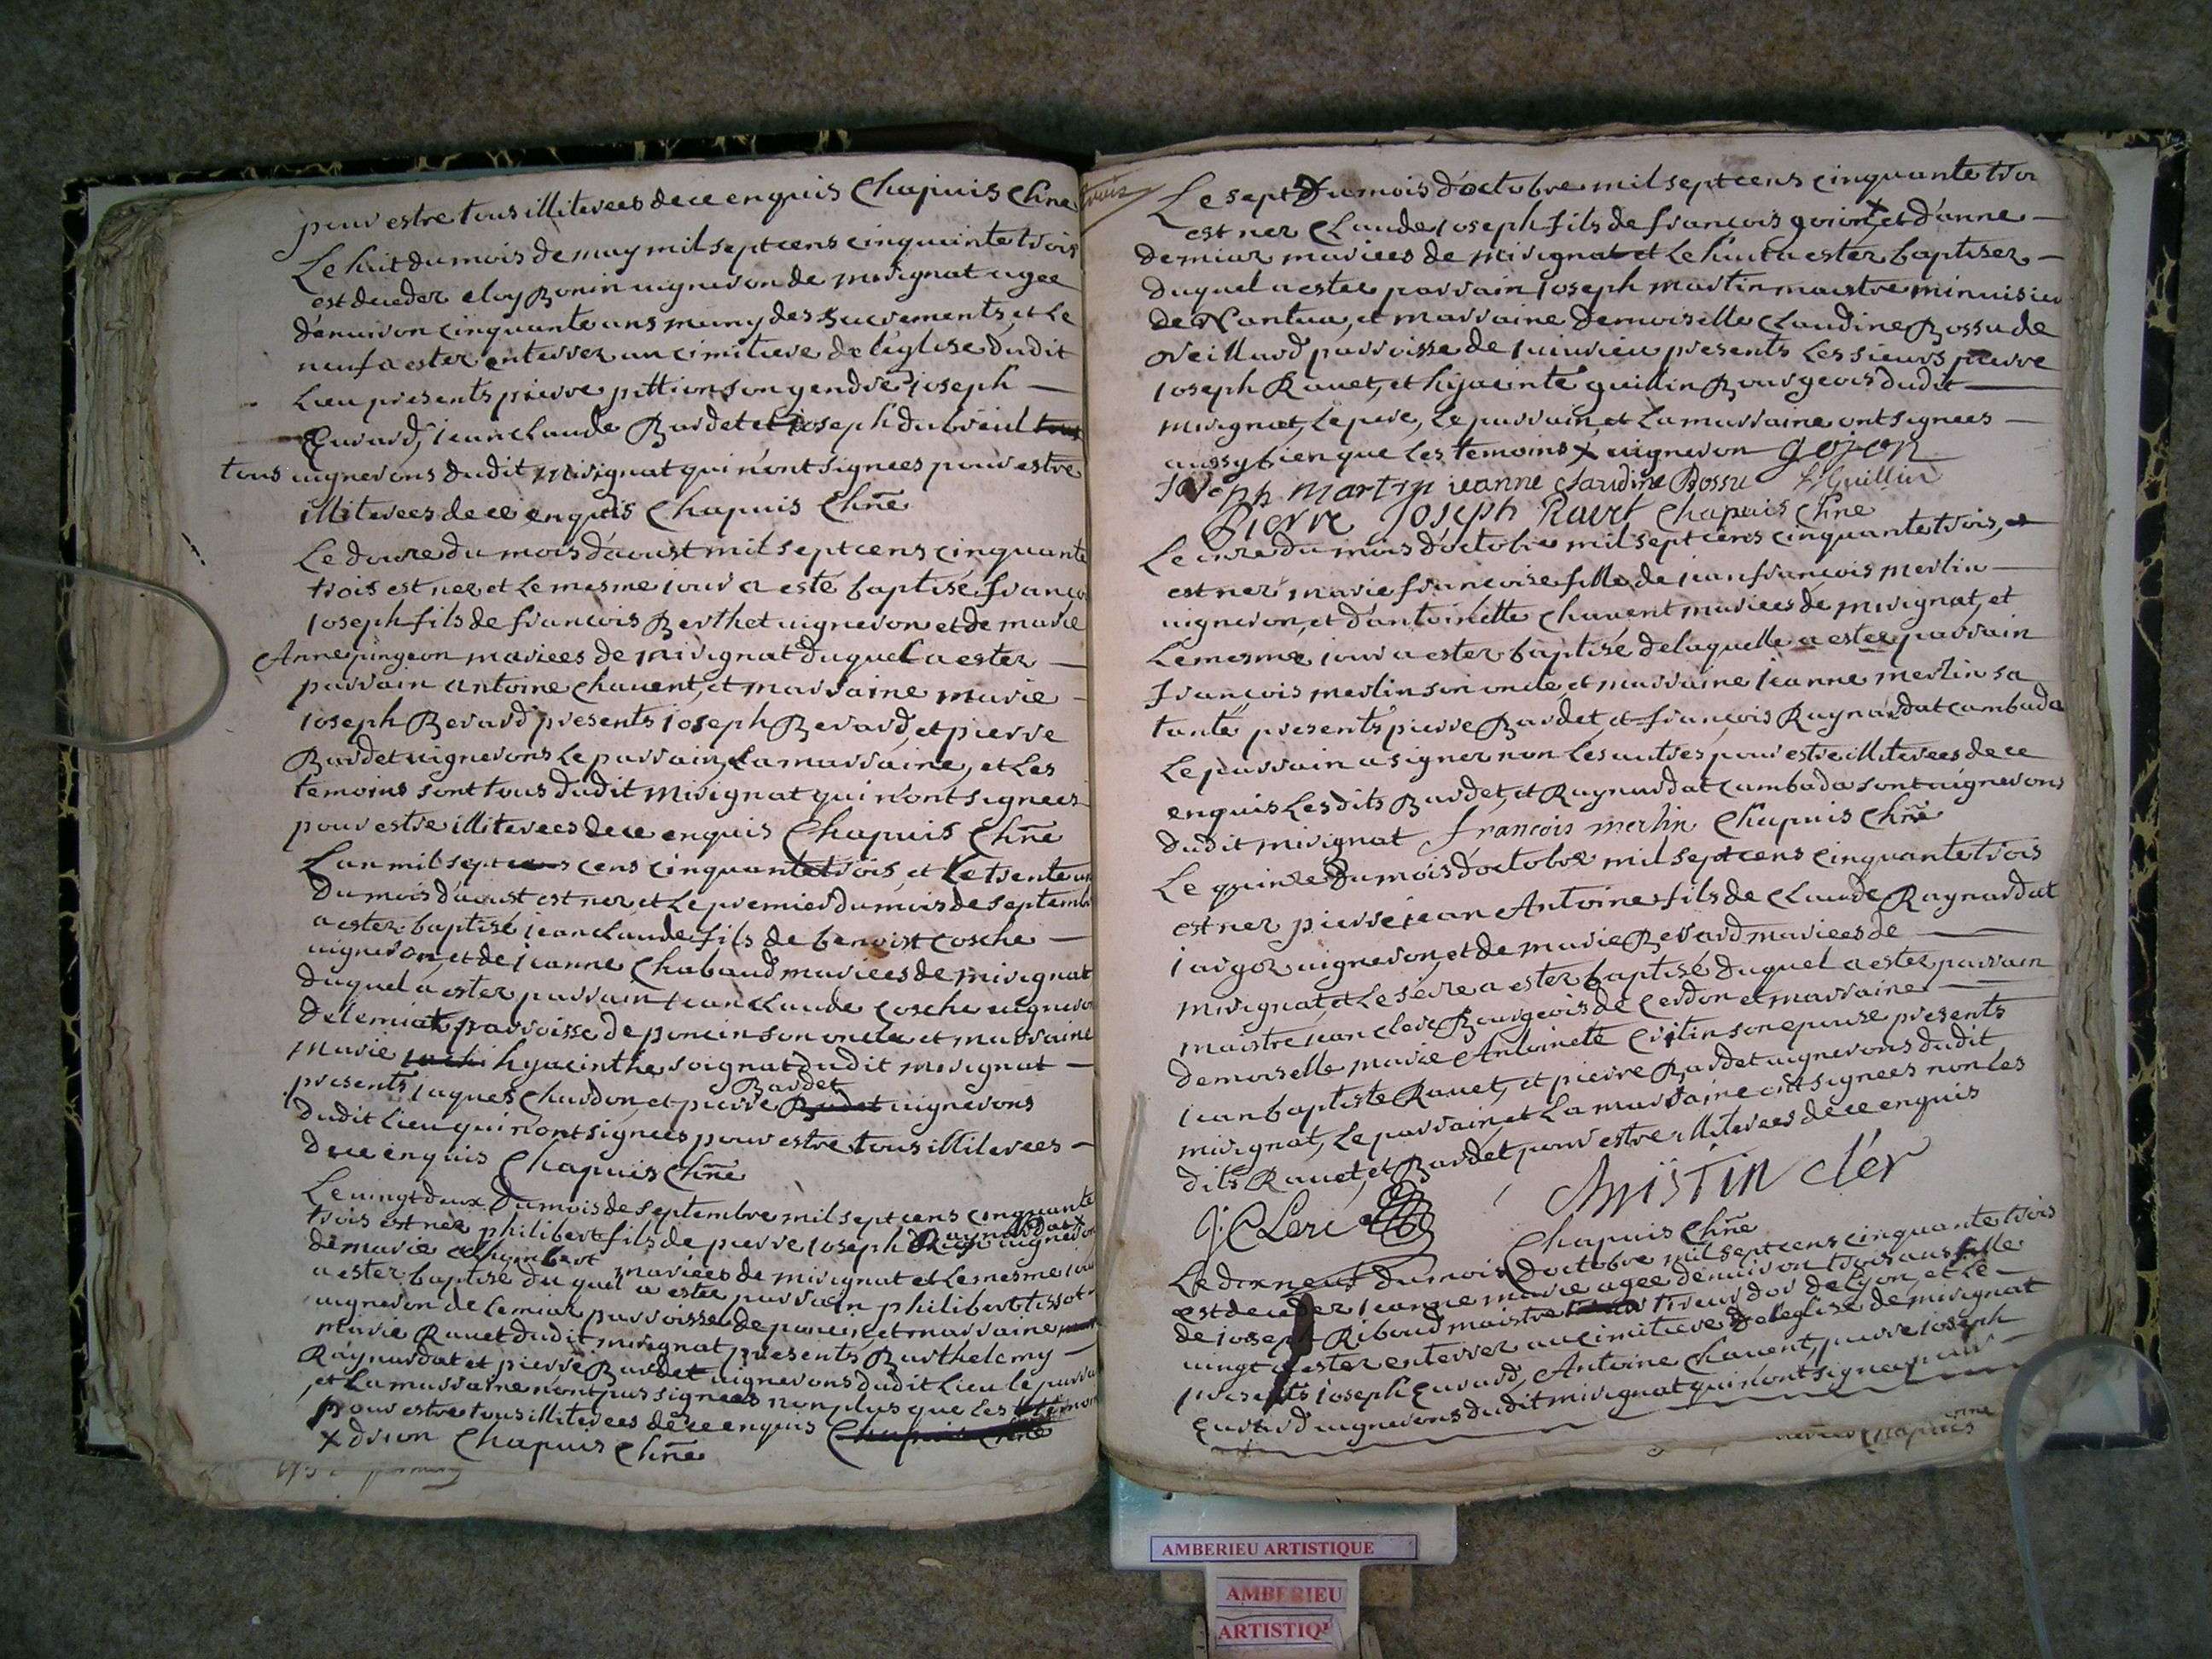 pour estre tous illiterees de ce enquis Chapuis Chñe
Le huit du mois de may mil sept cens cinquante trois
est deceder eloy Bonin uigneron de mirignat agee
d'enuiron cinquante ans muny des sacrements, et Le
neuf a ester enterrer au cimitiere de l'eglise dudit
Lieu presents pierre pittion son gendre joseph
Euvard, jean claude Bardet et joseph dubreul
tous uignerons dudit mirignat qui n'ont signees pour estre
illiterees de ce enquis Chapuis Chñe
Le douze du mois d'aoust mil sept cens cinquante
trois est ner et Le mesme jour a esté baptisé françois
Joseph fils de françois Berthet uigneron et de marie
Anne pingeon mariees de mirignat duquel a ester
parrain antoine chauent, et marraine marie
Joseph Berard presents joseph Berard, et pierre
Bardet uignerons Le parrain, La marraine, et Les
temoins sont tous dudit mirignat qui n'ont signees
pour estre illiterees de ce enquis Chapuis Chñe
L'an mil sept cens cinquante trois, et Le trente un
du mois d'aoust est ner et Le premier du mois de septembre
a ester baptisé jean claude fils de benoist cosche
uigneron, et de jeanne Chabaud mariees de mirignat
duquel a ester parrain jean claude cosche uigneron
de Lemiat parroisse de poncin son oncle et marraine
marie hyacinthe soignat dudit mirignat
presents jaques Chardon, et pierre Bardet uignerons
dudit Lieu qui n'ont signees pour estre tous illiterees
de ce enquis Chapuis Chñe
Le uingt deux du mois de septembre mil sept cens cinquante
trois est ner philibert fils de pierre joseph Raynardat x uigneron
de marie Chombert mariees de mirignat et Le mesme jour
a ester baptisé duquel a ester parrain philibert tissot
uigneron de Lemiat parroisse de poncin et marraine
marie Rauet dudit mirignat presents Barthelemy
Raynardat et pierre Bardet uignerons dudit Lieu le parrain
et La marraine n'ont pas signees non plus que Les temoins
pour estre tous illiterees de ce enquis Chapuis Chñe
x drion Chapuis Chñe
Le sept du mois d'octobre mil sept cens cinquante trois
est ner Claude joseph fils de françois goion x et d'anne
demiaz mariees de mirignat et Le huit a ester baptiser
duquel a ester parrain joseph martin maistre minuisier
de Nantua, et marraine demoiselle claudine Bossu de
oreillard parroisse de juiurieu presents Les sieurs pierre
Joseph Rauet, et hijacinte guillin Bourgeois dudit
mirignat, Le pere, Le parrain, et La marraine ont signees
aussy bien que Les temoins x uigneron gojon
Joseph martin jeanne claudine Bossu h Guillin
Pierre Joseph Ravet Chapuis Chñe
Le onze du mois d'octobre mil sept cens cinquante trois,
est ner marie françoise fille de jean françois merlin
uigneron, et d'antoinette chauent mariees de mirignat, et
Le mesme jour a ester baptisé de laquelle a ester parrain
françois merlin son oncle, et marraine jeanne merlin sa
tante presents pierre Bardet, et françois Raynardat cambada
Le parrain a signer non Les autres pour estre illiterees de ce
enquis Les dits Bardet, et Raynardat cambada sont uignerons
dudit mirignat françois merlin Chapuis Chñe
Le quinze du mois d'octobre mil sept cens cinquante trois
est ner pierre jean Antoine fils de claude Raynardat
jargoz uigneron, et de marie Berard mariees de
mirignat, et Le seize a ester baptisé duquel a ester parrain
maistre jean clerc Bourgeois de Cerdon et marraine
demoiselle marie Antoinete son epouse presents
jean baptiste Rauet, et pierre Bardet uignerons dudit
mirignat, Le parrain, et La marraine ont signees non Les
dits Rauet, et Bardet pour estre illiterees de ce enquis
Christin cler
Chapuis Chñe
Le dix neuf du mois d'octobre mil sept cens cinquante trois
est deceder jeanne marie agee d'enuiron trois ans fille
de joseph Riboud maistre tireur d'or de Lyon, et Le
uingt a ester enterrer au cimitiere de l'eglise de mirignat
presents joseph Euvard, Antoine Chauent, pierre joseph
Euvard uignerons dudit mirignat qui n'ont signees pour
AMBERIEU ARTISTIQUE
AMBERIEU
ARTISTIQU